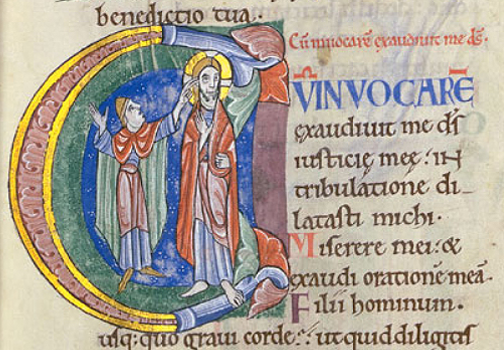 benedictio tua.
Cū inuocarē exaudiuit me ds̄.
CV̄INVOCARĒ
exaudiuit me ds̄
iusticię meę: IN
tribulatione di-
latasti michi.
Miserere mei: &
exaudi orationē meā.
Filii hominum.
usq: quo graui corde: ut quid diligitis